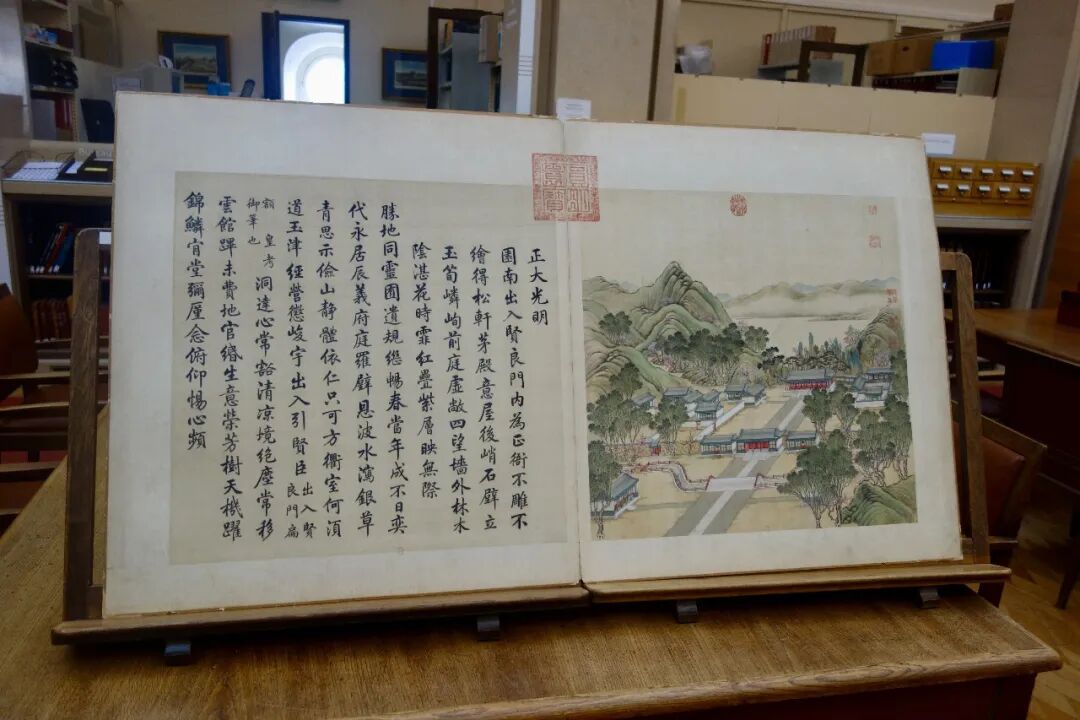 正大光明
園南出入賢良門內為正衙不雕不
繪得松軒茅殿意屋後峭石壁立
玉筍嶙峋前庭虛敞四望墻外林木
陰湛花時霏紅疊紫層映無際
勝地同靈囿遺規繼暢春當年成不日奕
代永居辰義府庭羅璧恩波水瀉銀草
青思示儉山靜體依仁只可方衢室何湏
道玉津經營懲峻宇出入引賢臣出入賢良門扁
額皇考御筆也洞達心常豁清凉境絕塵常移
雲館蹕未費地官緡生意榮芳樹天機躍
錦鱗肯堂彌厪念俯仰惕心頻